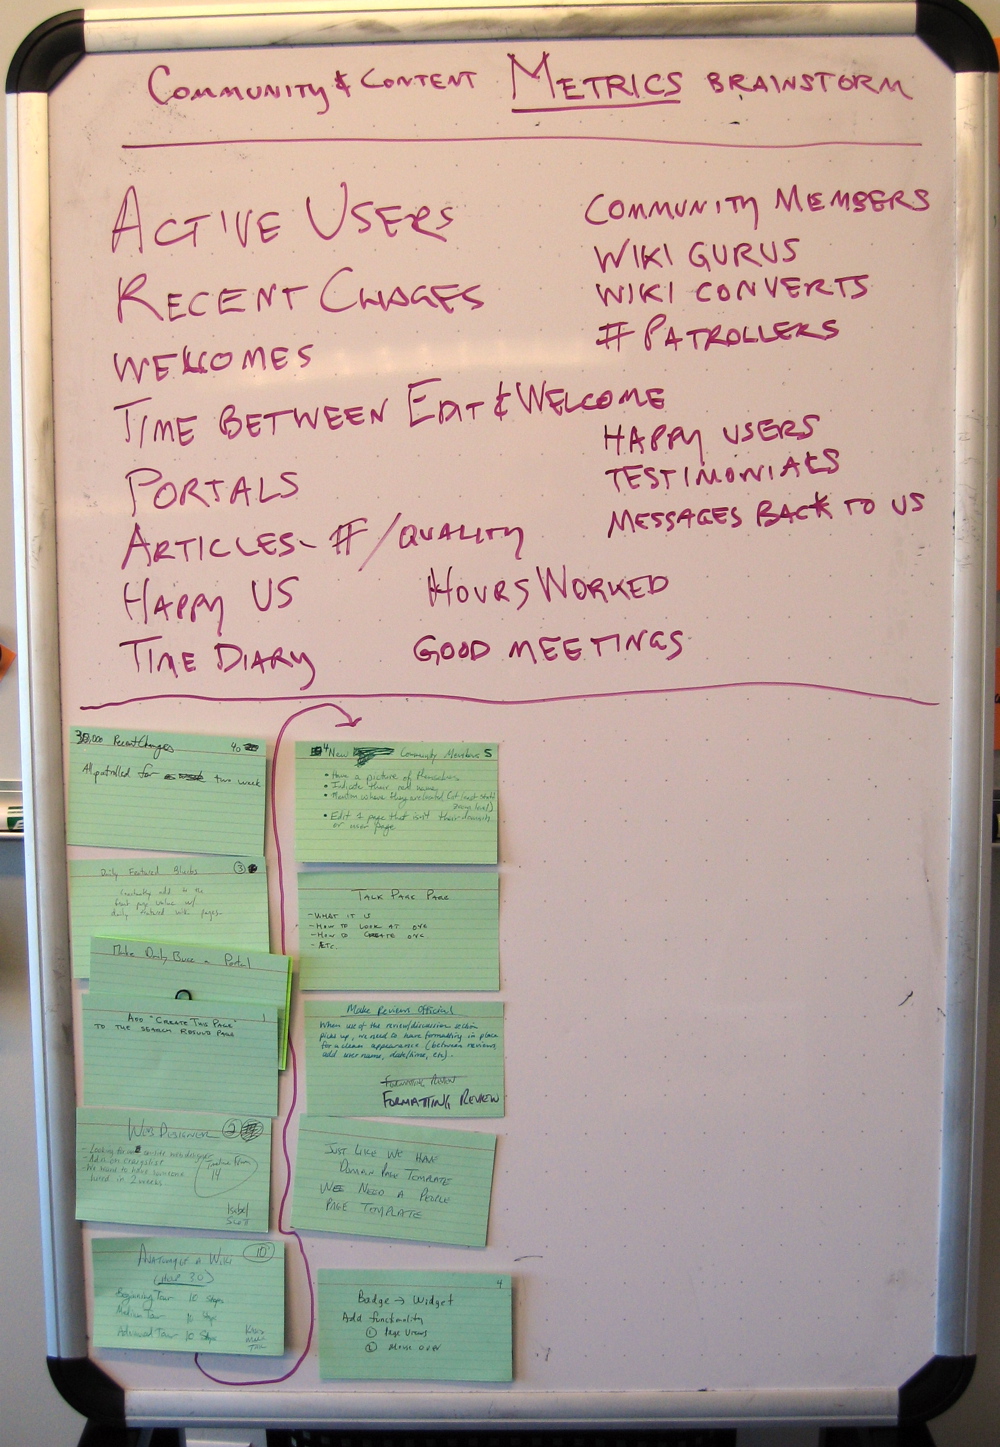 COMMUNITY & CONTENT METRICS BRAINSTORM
ACTIVE USERS
RECENT CHAGES
WELCOMES
TIME BETWEEN EDIT & WELCOME
PORTALS
ARTICLES - # / QUALITY
HAPPY US
HOURS WORKED
TIME DIARY
GOOD MEETINGS
COMMUNITY MEMBERS
WIKI GURUS
WIKI CONVERTS
# PATROLLERS
HAPPY USERS
TESTIMONIALS
MESSAGES BACK TO US
30,000 Recent Changes 40
All patrolled for two week
Daily Featured Blurbs 3
Constantly add to the
front page value w/
daily featured wiki pages
Make Daily Buce a Portal
ADD "CREATE THIS PAGE" 1
TO THE SEARCH RESULTS PAGE
WEB DESIGNER 2
- Looking for an on-site web designer
- Add on craigslist
- We want to have someone
hired in 2 weeks
14
Isabel
Scott
ANATOMY OF A WIKI 10
3.0)
Beginning Tour 10 Steps
Medium Tour 10 Steps
Advanced Tour 10 Steps
4 New Community Members 5
• Have a picture of themselves
• Indicate their real name
• Mention where they are located (at least state
level)
• Edit 1 page that isn't their domain
or user page
TALK PAGE PAGE
- WHAT IT IS
- HOW TO LOOK AT ONE
- HOW TO CREATE ONE
- ETC.
Make Reviews Official
When use of the review/discussion section
picks up, we need to have formatting in place
for a clean appearance (between reviews,
add user name, date/time, etc).
FORMATTING REVIEW
FORMATTING REVIEW
JUST LIKE WE HAVE
DOMAIN PAGE TOMPLATE
WEE NEED A PEOPLE
PAGE TEMPLATE
4
Badge → Widget
Add functionality
① Page Views
② Mouse over